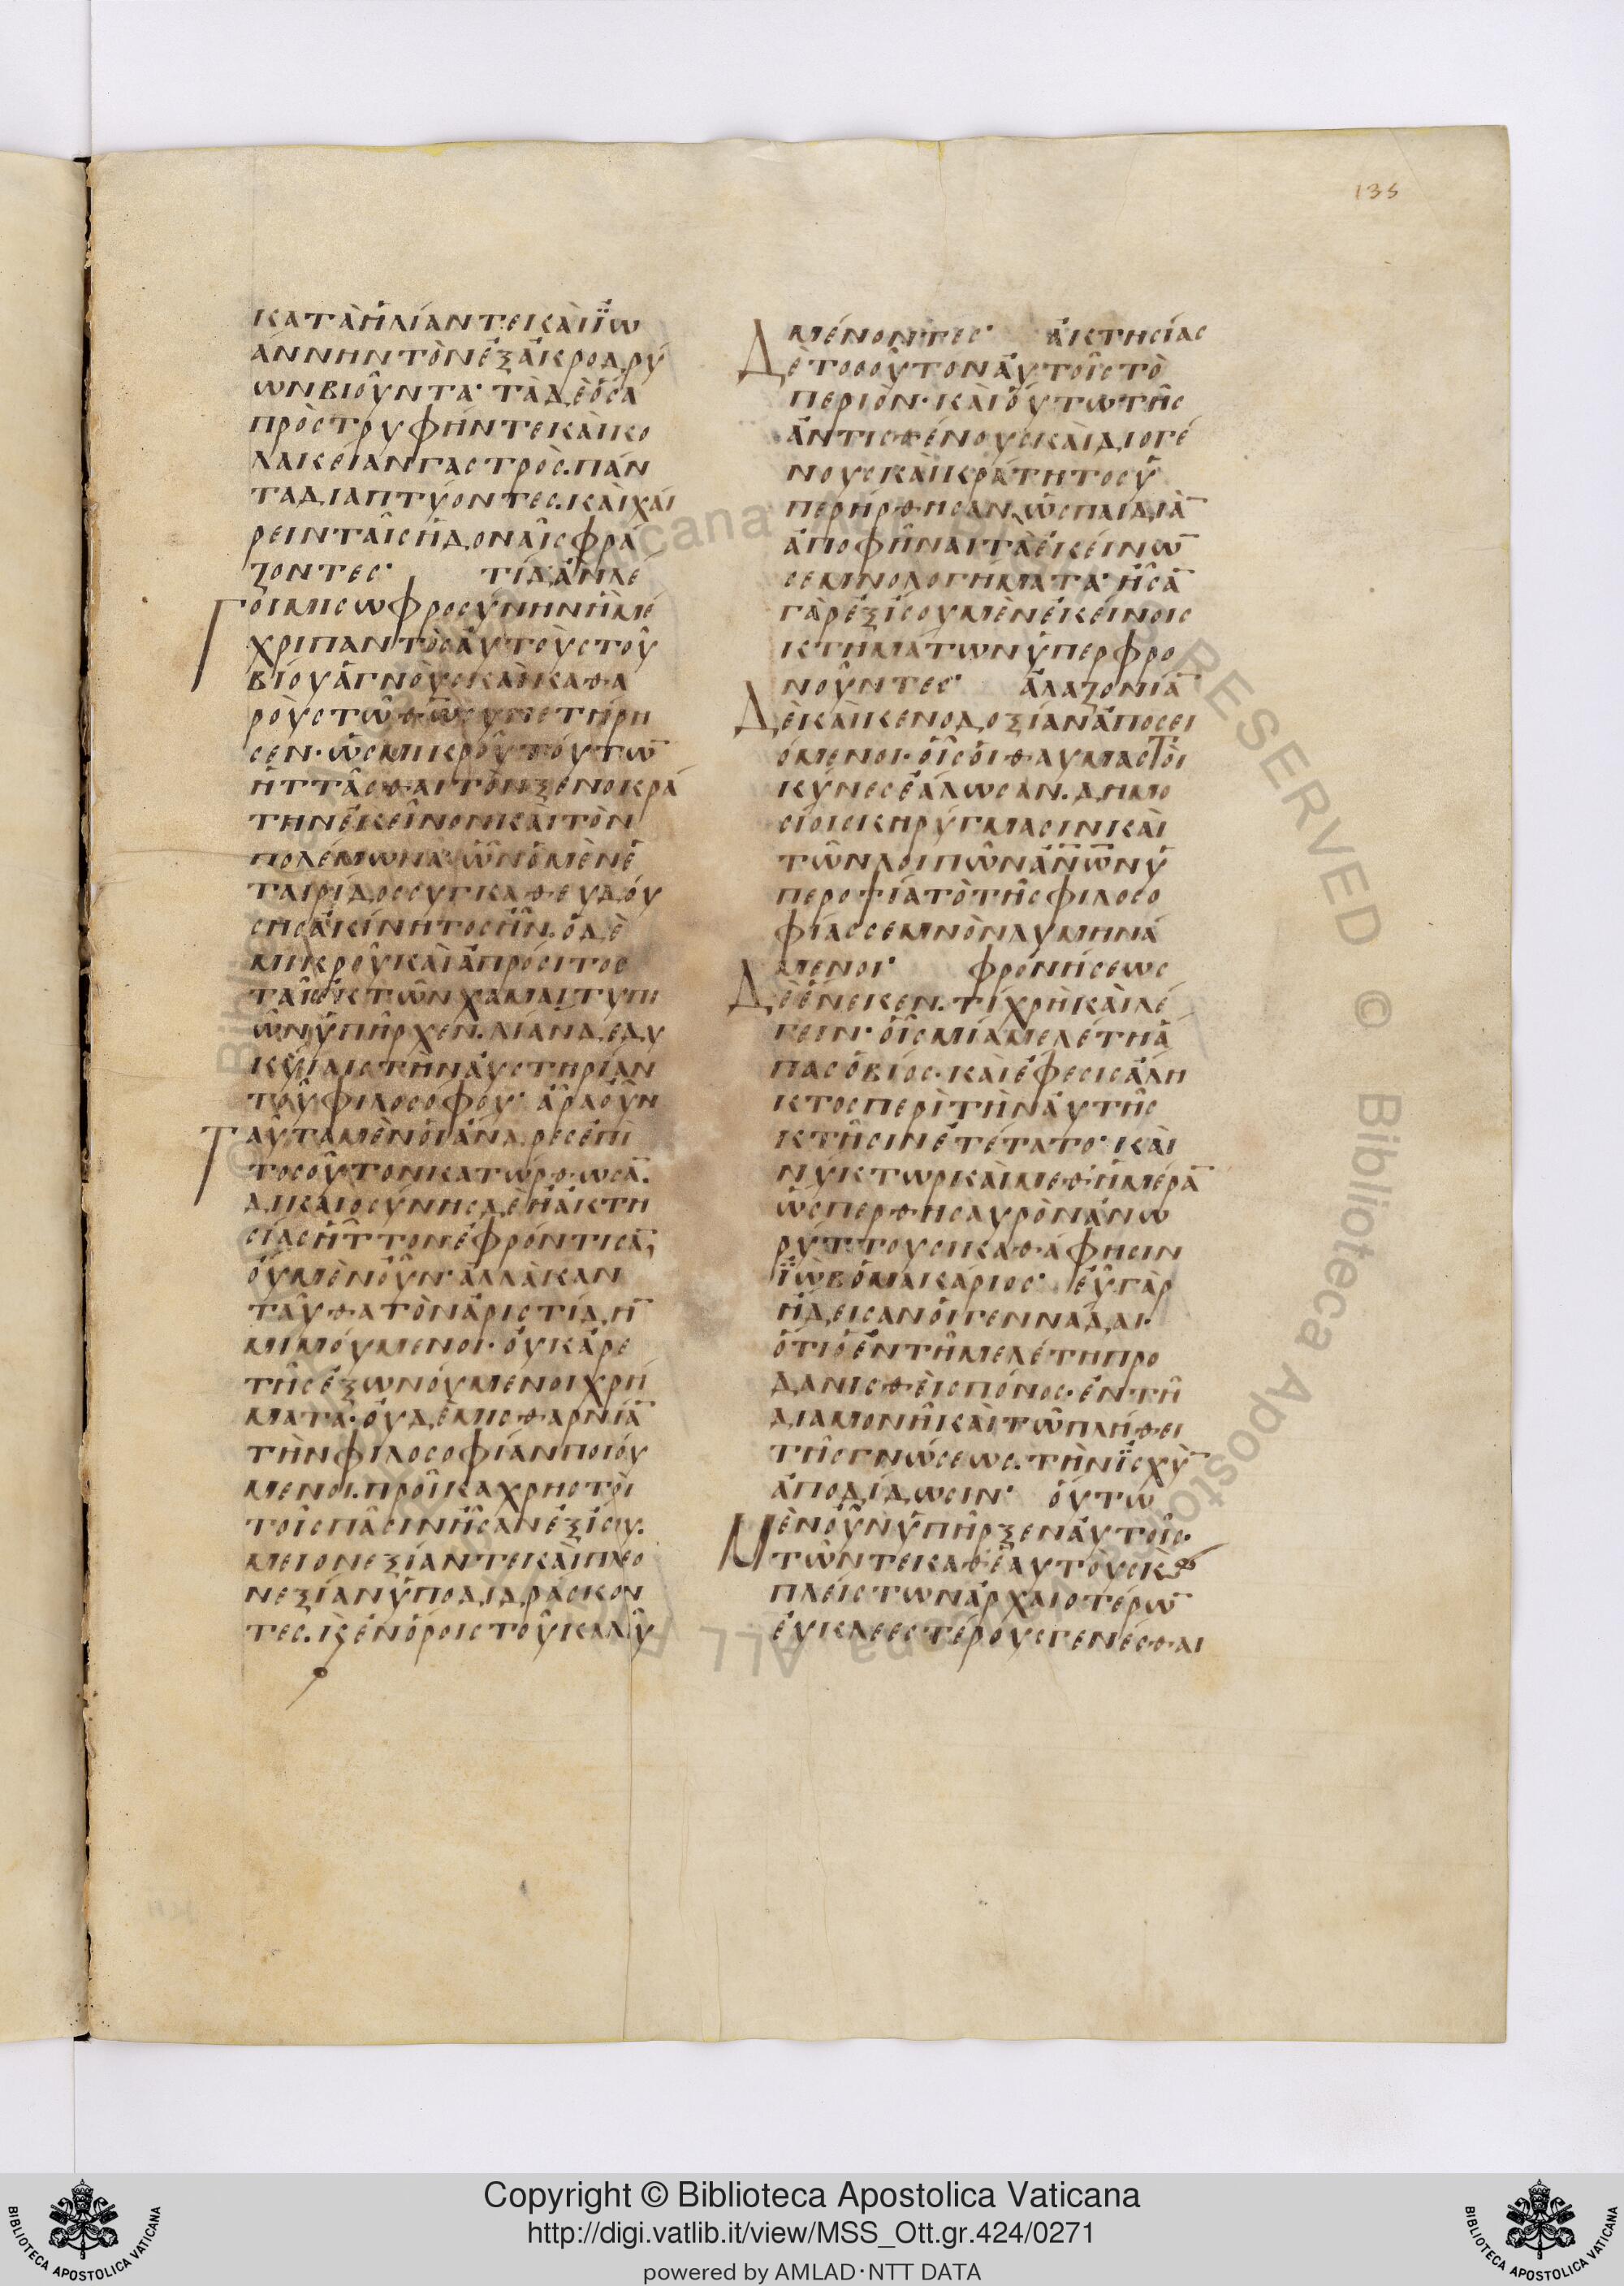 135
ΚΑΤᾺ Ἠλίαν τε καὶ Ἰω
άννην τὸν ἐξ ἀκροδρύ
ων βιοῦντα· τὰ δὲ ὅσα
πρὸς τρυφήν τε καὶ κο
λακείαν γαστρὸς. πάν
τα διαπτύοντες. καὶ χαί
ρειν ταῖς ἡδοναῖς φρά
ζοντες· τί δ' ἂν λέ
γοιμι σωφροσύνην ἣ μέ
χρι παντὸς αὐτοὺς τοῦ
βίου ἁγνοὺς καὶ καθα
ροὺς τῶ θω συνετήρη
σεν. ὡς μικροῦ τούτω̅
ἡττᾶσθαι τὸν ξενοκρά
την ἐκεῖνον καὶ τὸν
πολέμωνα· ὧν ὁ μὲν ἑ
ταιρίδος συγκαθευδού
σης ἀκίνητος ἦν. ὁ δὲ
μικροῦ καὶ ἀπρόσιτος
ταῖς ἐκ τῶν χαμαιτυπι
ῶν ὑπῆρχεν. λίαν δεδυ
κυίαις τὴν αὐστηρίαν
τοῦ φιλοσόφου· ἆρ' οὖν
ταῦτα μὲν οἱ ἄνδρες ἐπὶ
τοσοῦτον κατώρθωσα̅.
δικαιοσύνης δὲ ἢ ἀκτη
σίας ἧττον ἐφρόντισα̅;
οὐμὲνοῦν· ἀλλὰ κἀν
ταῦθα τὸν ἀριστίδη̅
μιμούμενοι. οὐκ ἀρε
τῆς ἐξωνούμενοι χρή
ματα. οὐδὲ μισθαρνία̅
τὴν φιλοσοφίαν ποιού
μενοι. προῖκα χρηστοὶ
τοῖς πᾶσιν ἦσαν ἐξίσου.
μειονεξίαν τε καὶ πλεο
νεξίαν ὑποδιδράσκον
τες. κἂν ἐν ὅροις τοῦ καλοῦ
μένοντες· ἀκτησίας
δὲ τοσοῦτον αὐτοῖς τὸ
περιὸν. καὶ οὕτω τῆς
ἀντισθένους καὶ διογέ
νους καὶ κράτητος ὑ
περήρθησαν, ὡς παιδιὰ̅
ἀποφῆναι τὰ ἐκείνω̅
σεμνολογήματα· ἦσα̅
γὰρ ἐξίσου μὲν ἐκείνοις
κτημάτων ὑπερφρο
νοῦντες· ἀλαζονία̅
δὲ καὶ κενοδοξίαν ἀποσει
όμενοι. οἷς οἱ θαυμαστοὶ
κύνες ἑάλωσαν. δημο
σίοις κηρύγμασιν καὶ
τῶν λοιπῶν ἀν̅ω̅ν ὑ
περοψία τὸ τῆς φιλοσο
φίας σεμνὸν λυμηνά
μενοι· φρονήσεως
δὲ ἕνεκεν. τί χρὴ καὶ λέ
γειν· οἷς μία μελέτη ἅ
πας ὁ βίος. καὶ ἔφεσις ἄλη
κτος περὶ τὴν αὐτῆς
κτῆσιν ἐτέτατο· καὶ
νύκτωρ καὶ μεθ' ἡμέρα̅
ὥσπερ θησαυρὸν ἀνω
ρύττουσι καθά φησιν
ἰὼβ ὁ μακάριος· εὖ γὰρ
ἤδεισαν οἱ γεννάδαι.
ὅτι ὁ ἐν τῆ μελέτη προ
δανισθεὶς πόνος. ἐν τῆ
διαμονῆ καὶ τῶ πλήθει
τῆς γνώσεως. τὴν ἰσχὺ̅
ἀποδίδωσιν· οὕτω
μὲν οὖν ὑπῆρξεν αὐτοῖς.
τῶν τε καθ' ἑαυτοὺς κ
πλείστων ἀρχαιοτέρω̅
εὐκλεεστέρους γενέσθαι
Copyright © Biblioteca Apostolica Vaticana
http://digi.vatlib.it/view/MSS_Ott.gr.424/0271
powered by AMLAD·NTT DATA
BIBLIOTECA APOSTOLICA VATICANA
BIBLIOTECA APOSTOLICA VATICANA